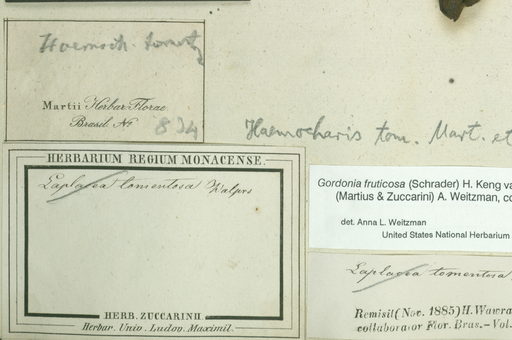 Haemoch. tomentz
Martii Herbar. Florae
Brasil. No
834
Haemocharis tom. Mart. et
HERBARIUM REGIUM MONACENSE.
Laplacea tomentosa Walprs
HERB. ZUCCARINII.
Herbar. Univ. Ludov. Maximil.
Gordonia fruticosa (Schrader) H. Keng va
(Martius & Zuccarini) A. Weitzman, co
det. Anna L. Weitzman
United States National Herbarium
Laplacea tomentosa
Remisit (Nov. 1885) H. Wawra
collaborator Flor. Bras.–Vol.